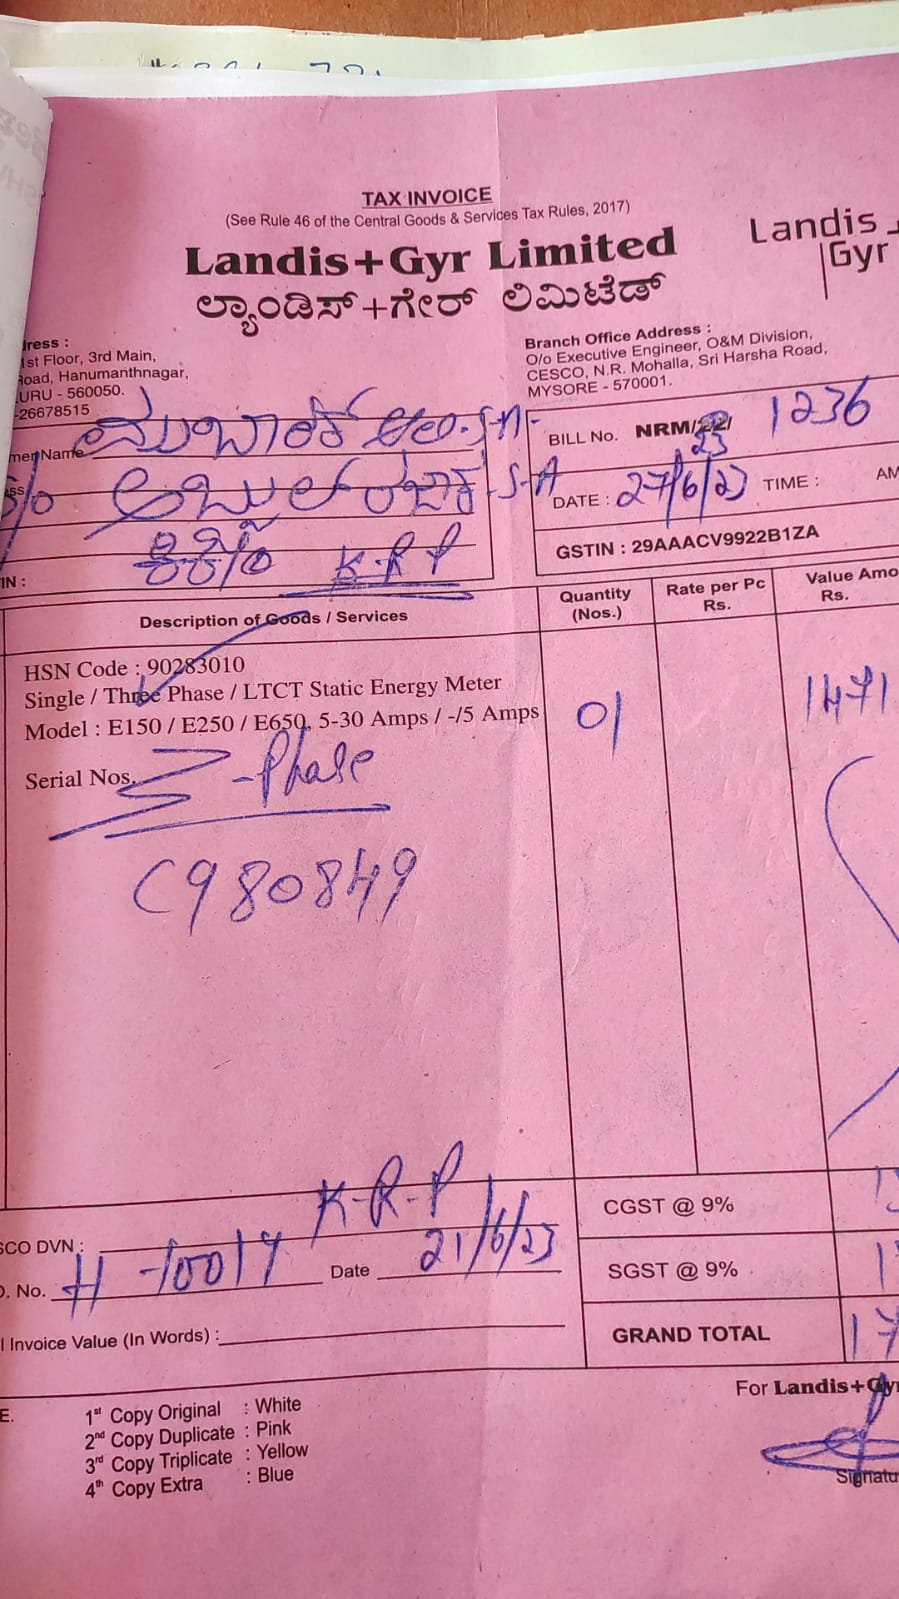 TAX INVOICE
(See Rule 46 of the Central Goods & Services Tax Rules, 2017)
Landis+Gyr Limited
Landis
Gyr
ಲ್ಯಾಂಡಿಸ್+ಗೇರ್ ಲಿಮಿಟೆಡ್
ress :
1st Floor, 3rd Main,
oad, Hanumanthnagar,
URU - 560050.
-26678515
Branch Office Address :
O/o Executive Engineer, O&M Division,
CESCO, N.R. Mohalla, Sri Harsha Road,
MYSORE - 570001.
mer Name ಮುಬಾರಕ್ S-A-
ess S/o ಅಬ್ದುಲ್ S-A
K-R-P
IN :
BILL No. NRM/22/ 23 1236
DATE : 27/6/23 TIME : AM
GSTIN : 29AAACV9922B1ZA
Description of Goods / Services
Quantity (Nos.)
Rate per Pc Rs.
Value Amo Rs.
HSN Code : 90283010
Single / Three Phase / LTCT Static Energy Meter
Model : E150 / E250 / E650, 5-30 Amps / -/5 Amps
01
1471
Serial Nos. 3-Phase
C980849
CGST @ 9%
SCO DVN : K-R-P
O. No. H-10014 Date 21/6/23
SGST @ 9%
l Invoice Value (In Words) :
GRAND TOTAL 17
For Landis+Gyr
E.
1st Copy Original : White
2nd Copy Duplicate : Pink
3rd Copy Triplicate : Yellow
4th Copy Extra : Blue
Signatu